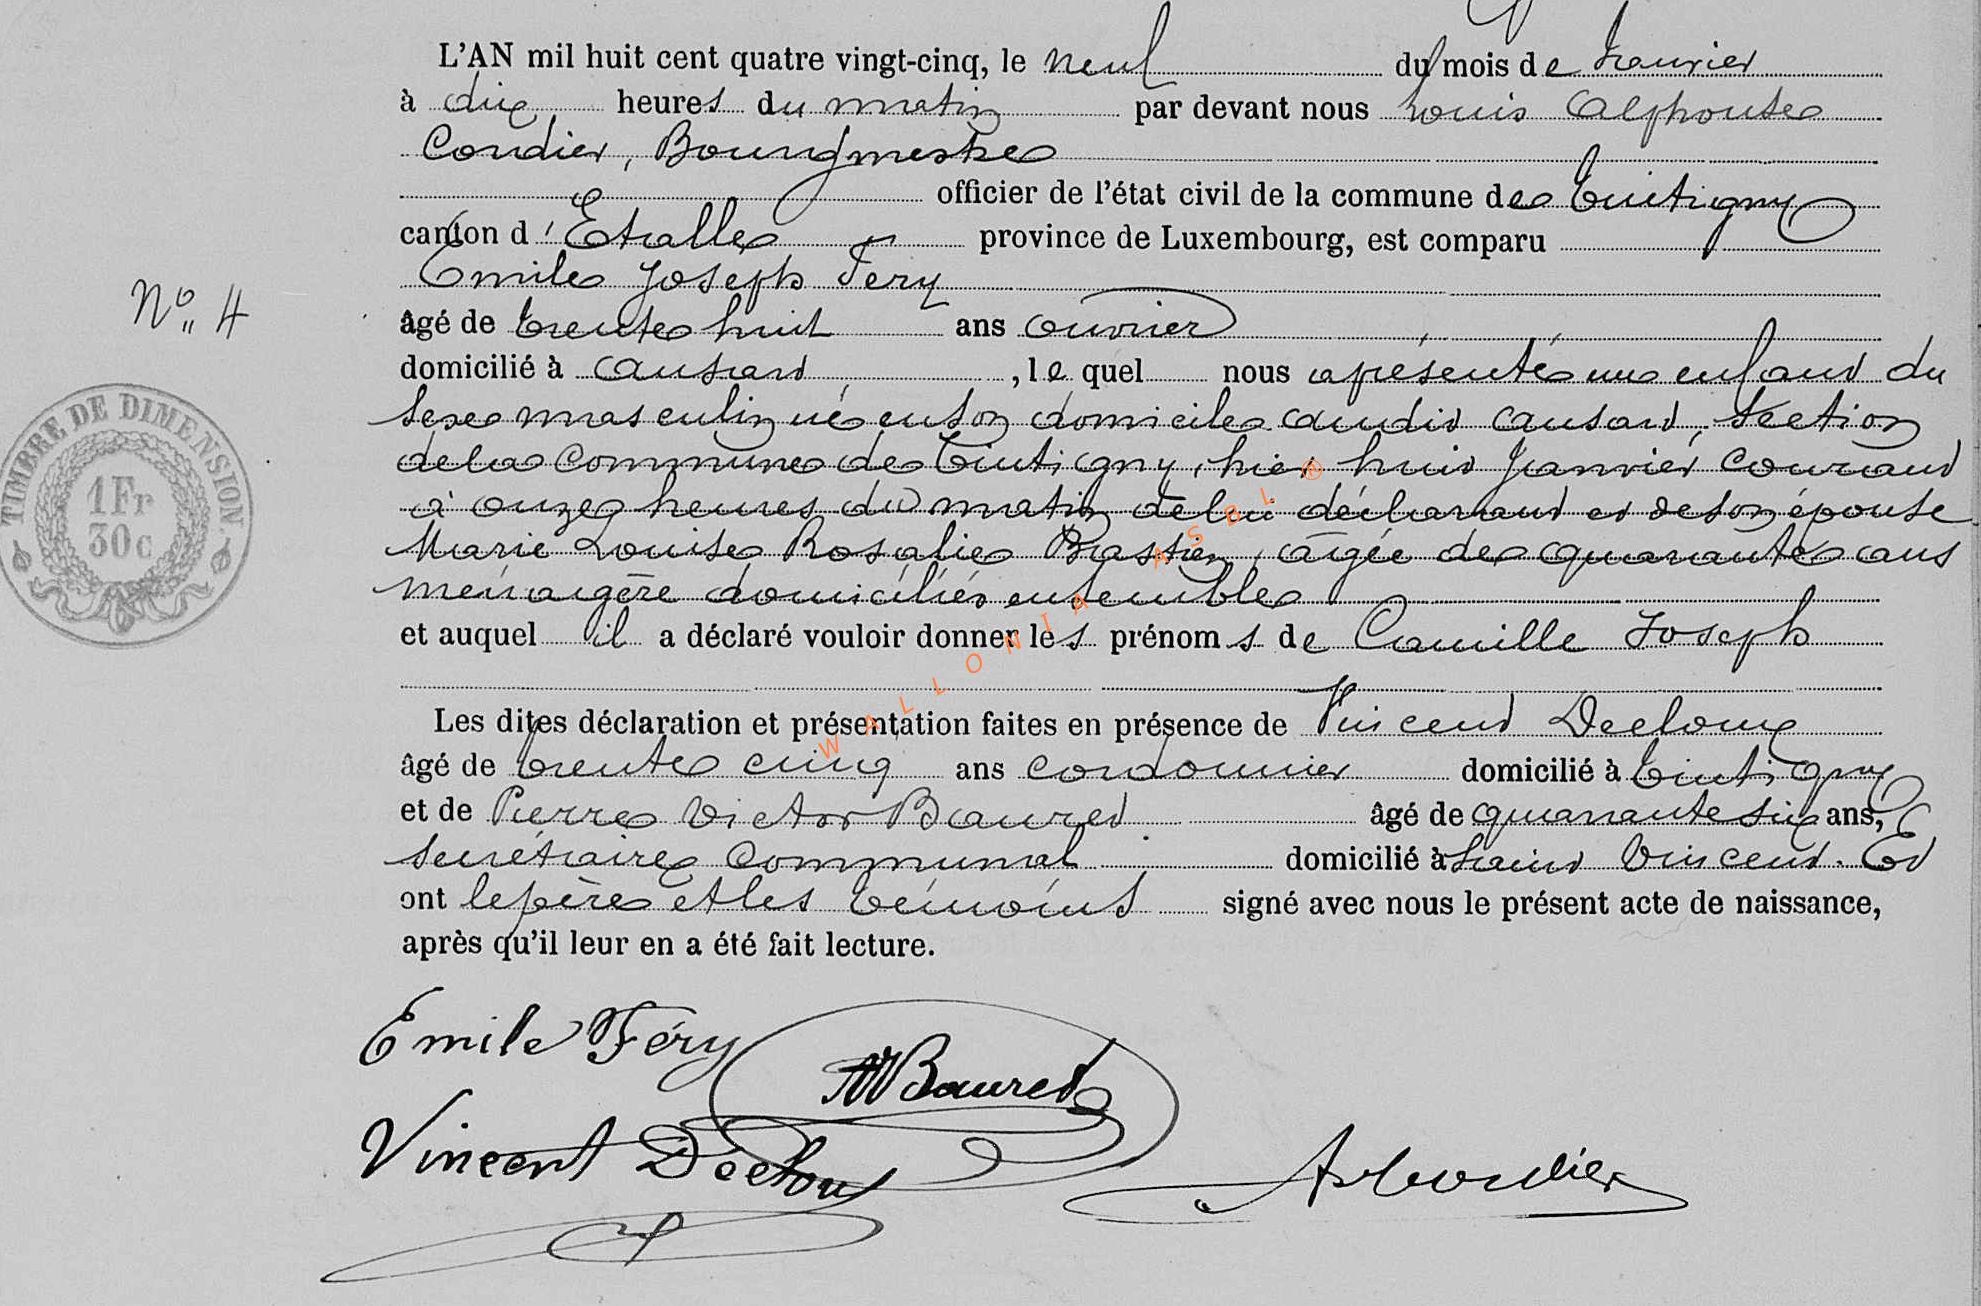 L'AN mil huit cent quatre vingt-cinq, le neuf du mois de Janvier
à dix heures du matin par devant nous Louis Alphonse
Cordier, Bourgmestre
officier de l'état civil de la commune de Tintigny
canton d'Etalle province de Luxembourg, est comparu
Emile Joseph Féry
N° 4
âgé de trente huit ans ouvrier
domicilié à ansart, lequel nous a présenté un enfant du
sexe masculin né en son domicile audit ansart, section
de la commune de Tintigny, hier huit Janvier courant
à onze heures du matin de lui déclarant et de son épouse
Marie Louise Rosalie âgée de quarante ans
ménagère domiciliés ensemble
et auquel il a déclaré vouloir donner les prénoms de Camille Joseph
Les dites déclaration et présentation faites en présence de Vincent Decloux
âgé de trente cinq ans cordonnier domicilié à Tintigny
et de Pierre Victor Bauret âgé de quarante six ans,
secrétaire communal domicilié à Saint Vincent. Et
ont le père et les témoins signé avec nous le présent acte de naissance,
après qu'il leur en a été fait lecture.
TIMBRE DE DIMENSION.
1 Fr
30 c
WALLONIA ASBL ®
Emile Féry
Bauret
Vincent Decloux
Cordier